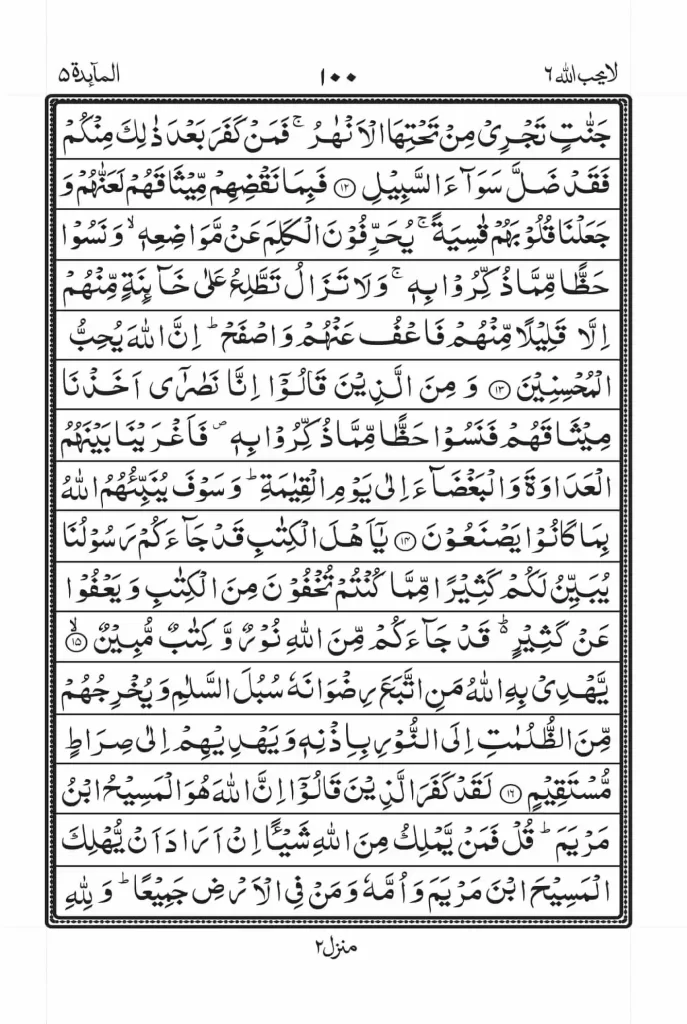 لا يحب الله ٦ ١٠٠ المآىِٕدة ٥
جَنّٰتٍ تَجْرِىْ مِنْ تَحْتِهَا الْاَنْهٰرُ ۚ فَمَنْ كَفَرَ بَعْدَ ذٰلِكَ مِنْكُمْ
فَقَدْ ضَلَّ سَوَآءَ السَّبِيْلِ ﴿۱۲﴾ فَبِمَا نَقْضِهِمْ مِّيْثَاقَهُمْ لَعَنّٰهُمْ وَ
جَعَلْنَا قُلُوْبَهُمْ قٰسِيَةً ۚ يُحَرِّفُوْنَ الْكَلِمَ عَنْ مَّوَاضِعِهٖ ۙ وَ نَسُوْا
حَظًّا مِّمَّا ذُكِّرُوْا بِهٖ ۚ وَلَا تَزَالُ تَطَّلِعُ عَلٰى خَآىِٕنَةٍ مِّنْهُمْ
اِلَّا قَلِيْلًا مِّنْهُمْ فَاعْفُ عَنْهُمْ وَاصْفَحْ ؕ اِنَّ اللّٰهَ يُحِبُّ
الْمُحْسِنِيْنَ ﴿۱۳﴾ وَ مِنَ الَّذِيْنَ قَالُوْۤا اِنَّا نَصٰرٰۤى اَخَذْنَا
مِيْثَاقَهُمْ فَنَسُوْا حَظًّا مِّمَّا ذُكِّرُوْا بِهٖ ۪ فَاَغْرَيْنَا بَيْنَهُمُ
الْعَدَاوَةَ وَالْبَغْضَآءَ اِلٰى يَوْمِ الْقِيٰمَةِ ؕ وَسَوْفَ يُنَبِّئُهُمُ اللّٰهُ
بِمَا كَانُوْا يَصْنَعُوْنَ ﴿۱۴﴾ يٰۤاَهْلَ الْكِتٰبِ قَدْ جَآءَكُمْ رَسُوْلُنَا
يُبَيِّنُ لَكُمْ كَثِيْرًا مِّمَّا كُنْتُمْ تُخْفُوْنَ مِنَ الْكِتٰبِ وَ يَعْفُوْا
عَنْ كَثِيْرٍ ؕ۬ قَدْ جَآءَكُمْ مِّنَ اللّٰهِ نُوْرٌ وَّ كِتٰبٌ مُّبِيْنٌ ﴿ۙ۱۵﴾
يَّهْدِىْ بِهِ اللّٰهُ مَنِ اتَّبَعَ رِضْوَانَهٗ سُبُلَ السَّلٰمِ وَ يُخْرِجُهُمْ
مِّنَ الظُّلُمٰتِ اِلَى النُّوْرِ بِاِذْنِهٖ وَ يَهْدِيْهِمْ اِلٰى صِرَاطٍ
مُّسْتَقِيْمٍ ﴿۱۶﴾ لَقَدْ كَفَرَ الَّذِيْنَ قَالُوْۤا اِنَّ اللّٰهَ هُوَ الْمَسِيْحُ ابْنُ
مَرْيَمَ ؕ قُلْ فَمَنْ يَّمْلِكُ مِنَ اللّٰهِ شَيْـًٔا اِنْ اَرَادَ اَنْ يُّهْلِكَ
الْمَسِيْحَ ابْنَ مَرْيَمَ وَ اُمَّهٗ وَمَنْ فِى الْاَرْضِ جَمِيْعًا ؕ وَ لِلّٰهِ
منزل ٢